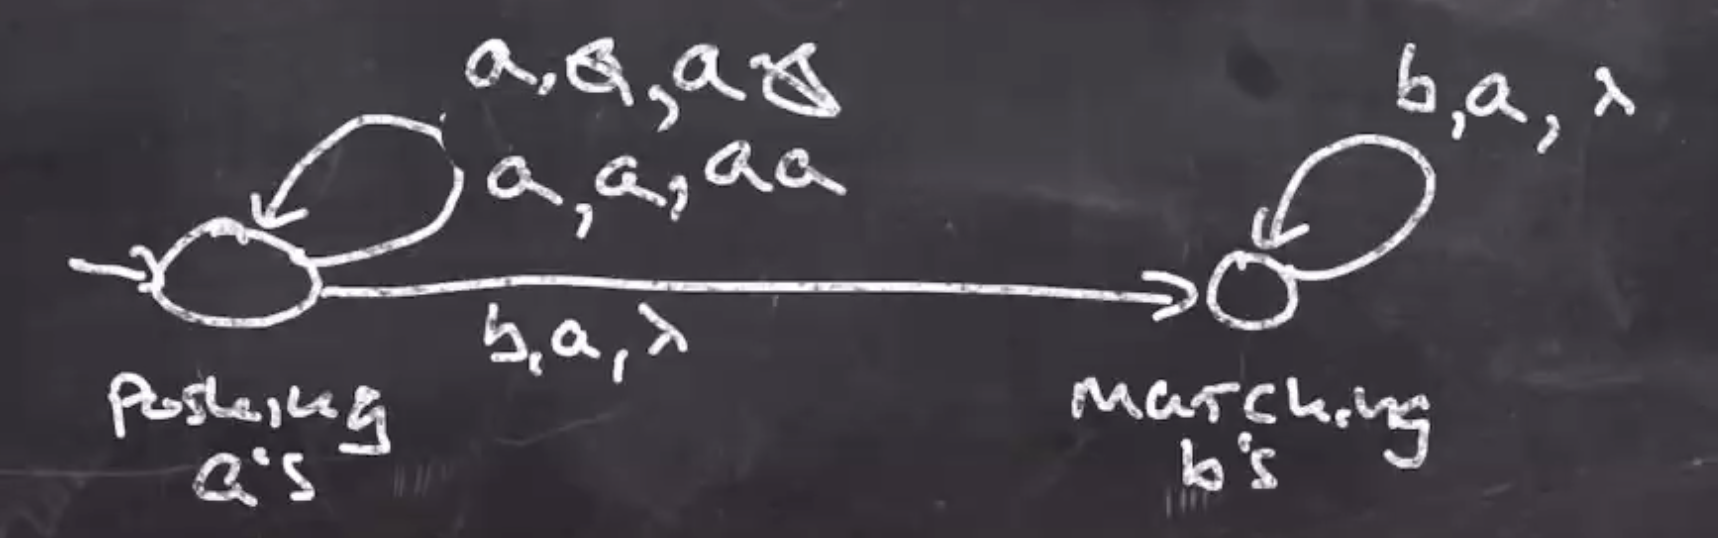 a, , a
b,a, λ
a,a,aa
b,a,λ
Pushing
a's
Matching
b's